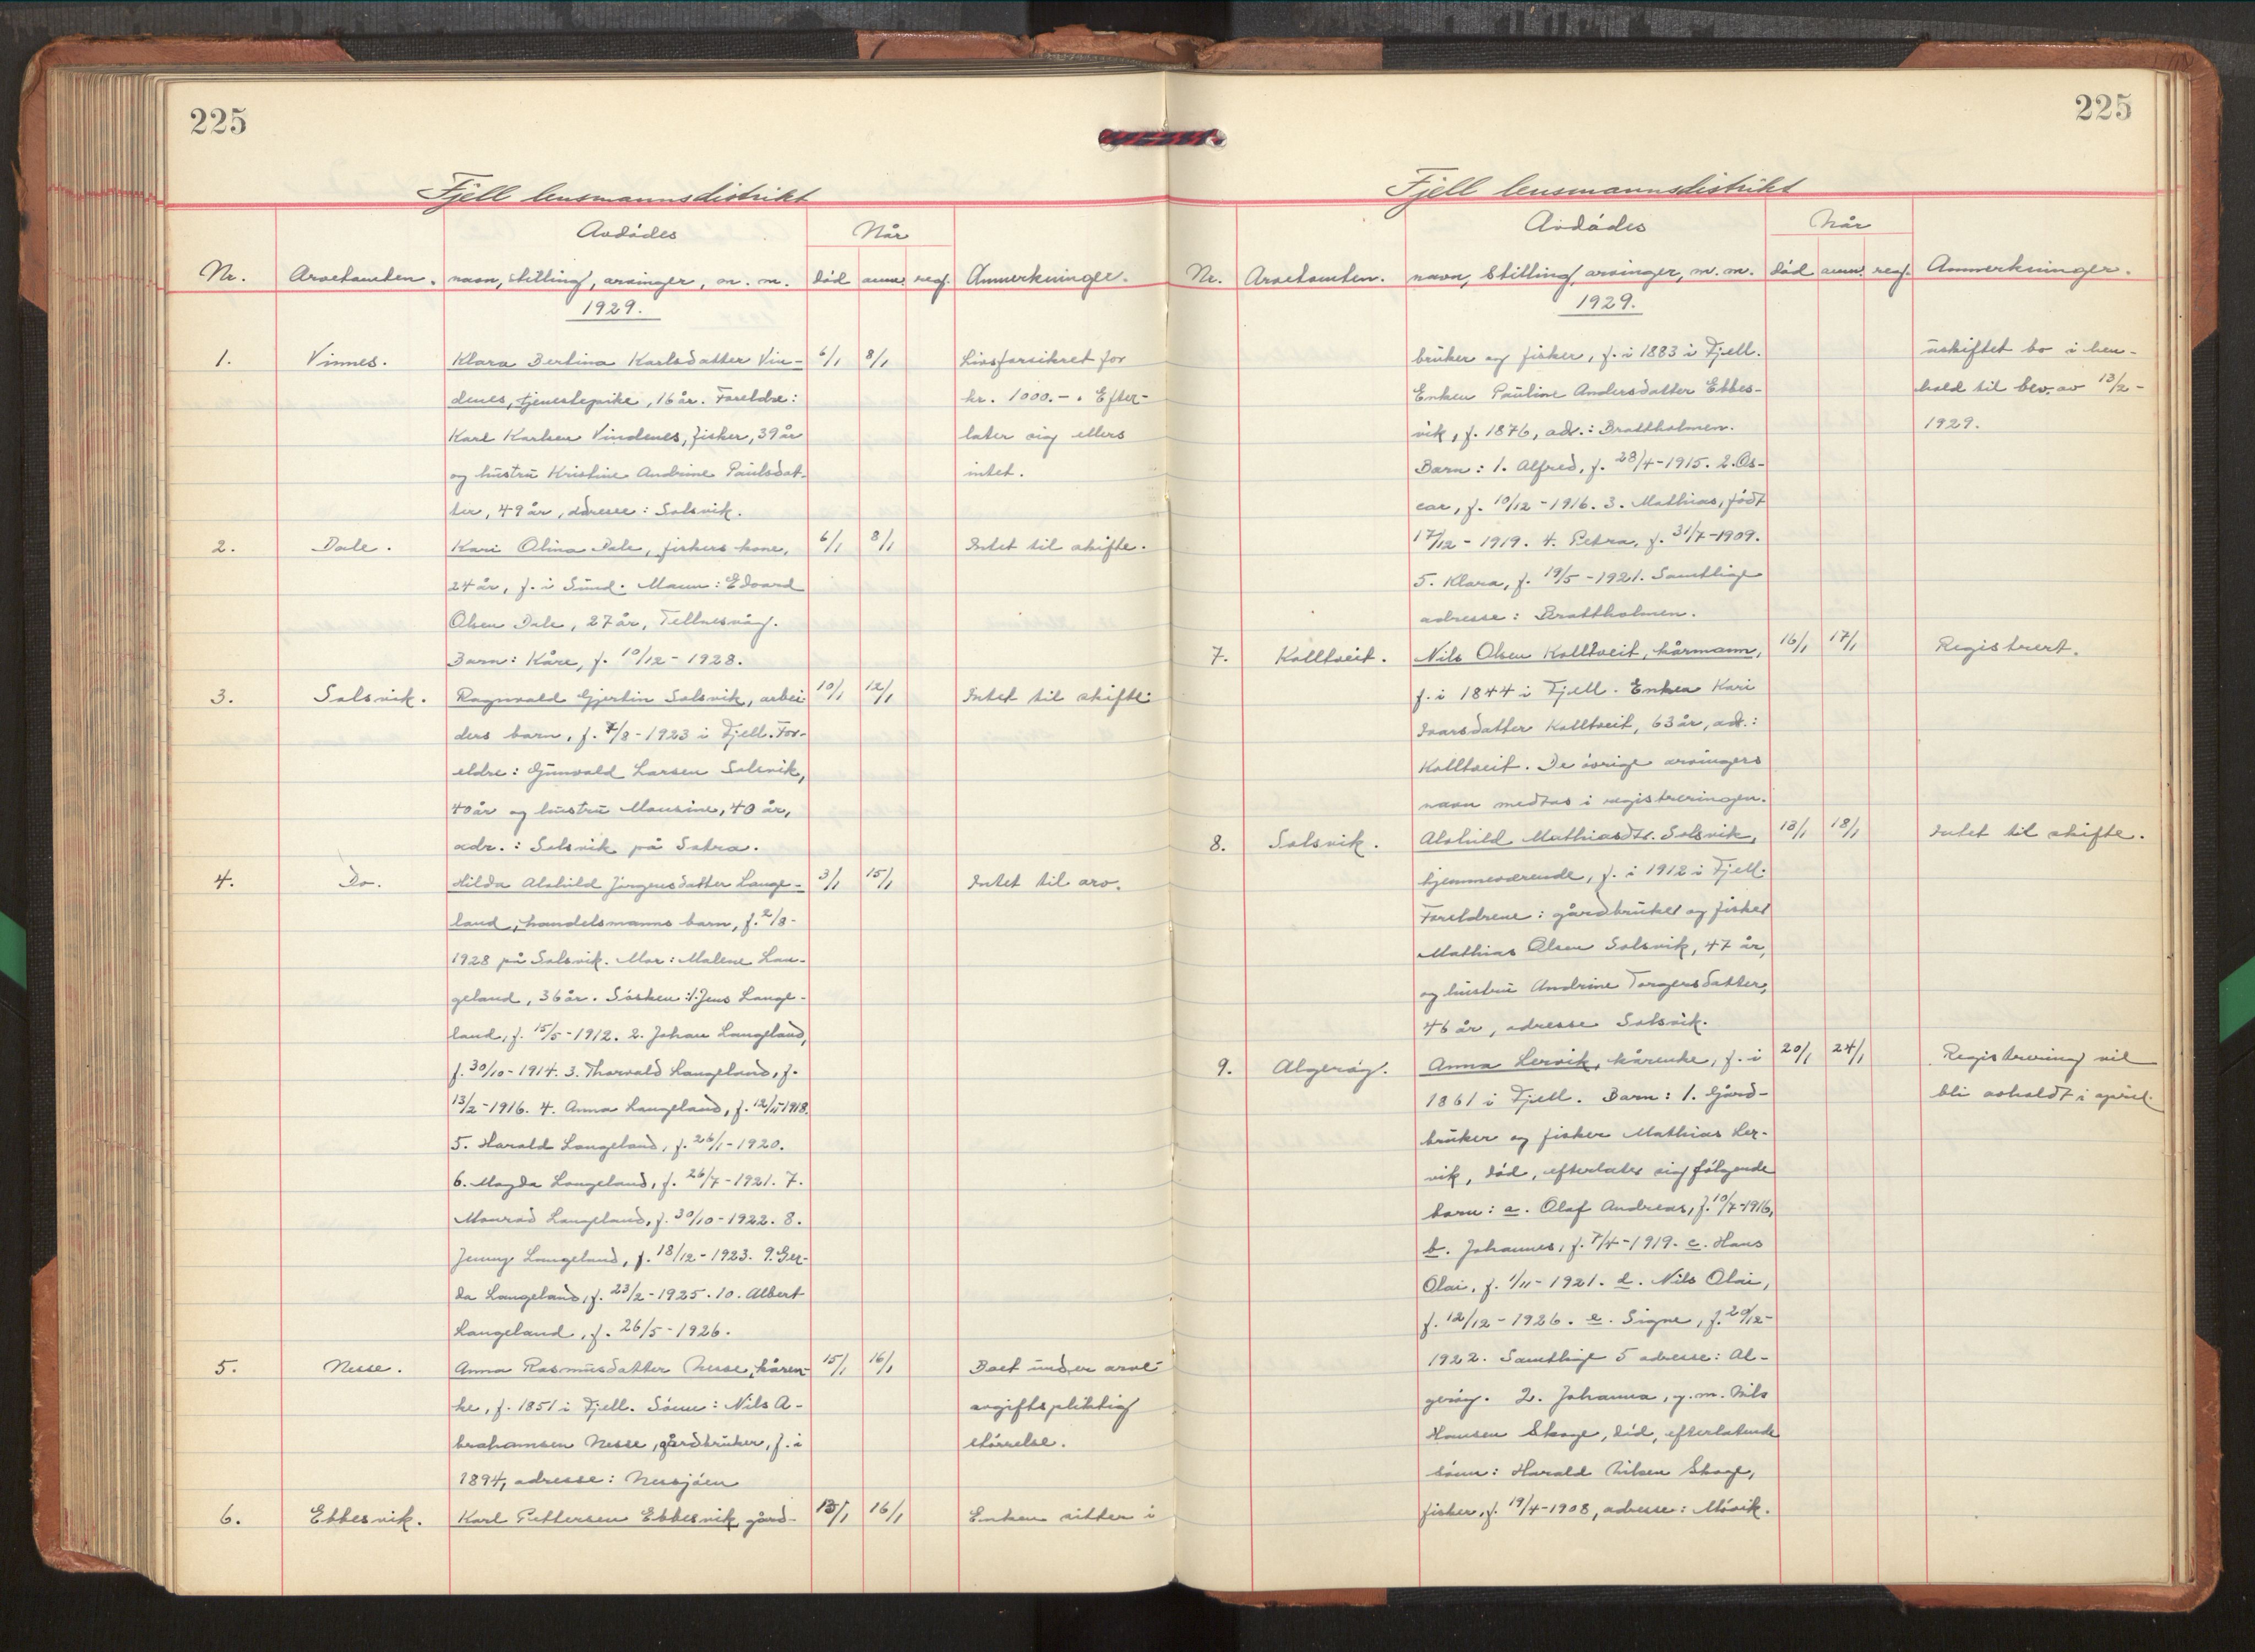 225
Fjell lensmannsdistrikt
Avdødes
Når
Nr. Arvetomten. navn, stilling, arvinger, m. m. død anm. reg. Anmerkninger.
1929.
1. Vinnes. Klara Bertina Karlsdatter Vin- 6/1 8/1 Livsforsikret for
denes, tjenestepike, 16 år. Foreldre: kr. 1000.-. Efter-
Karl Karlsen Vindenes, fisker, 39 år later sig ellers
og hustru Kristine Andrine Paulsdat- intet.
ter, 49 år, adresse: Solsvik.
2. Dale. Kari Olina Dale, fiskers kone, 6/1 8/1 Intet til skifte.
24 år, f. i Sund. Mann: Edvard
Olsen Dale, 27 år, Tellnesvåg.
Barn: Kåre, f. 10/12-1928.
3. Solsvik. Ragnvald Gjertin Solsvik, arbei 10/1 12/1 Intet til skifte.
ders barn, f. 7/8-1923 i Fjell. For-
eldre: Gunvald Larsen Solsvik,
40 år og hustru Monsine, 40 år,
adr.: Solsvik på Sotra.
4. Do. Hilda Alvhild Jørgensdatter Lange- 3/1 15/1 Intet til arv.
land, handelsmanns barn, f. 2/8-
1928 på Solsvik. Mor: Malene Lan-
geland, 36 år. Søsken: 1. Jens Lange-
land, f. 15/5-1912. 2. Johan Langeland,
f. 30/10-1914. 3. Thorvald Langeland, f.
13/2-1916. 4. Anna Langeland, f. 12/11-1918.
5. Harald Langeland, f. 26/1-1920.
6. Magda Langeland, f. 26/7-1921. 7.
Monrad Langeland, f. 30/10-1922. 8.
Jenny Langeland, f. 18/12-1923. 9. Ger-
da Langeland, f. 23/2-1925. 10. Albert
Langeland, f. 26/5-1926.
5. Nesse. Anna Rasmusdatter Nesse, kåren- 15/1 16/1 Boet under arve-
ke, f. 1851 i Fjell. Sønn: Nils A- avgiftspliktig
brahamsen Nesse, gårdbruker, f. i størrelse.
1894, adresse: Nessjøen
6. Ebbesvik. Karl Pettersen Ebbesvik, gård- 15/1 16/1 Enken sitter i
225
Fjell lensmannsdistrikt
Avdødes
Når
Nr. Arvetomten. navn, stilling, arvinger, m. m. død anm. reg. Anmerkninger.
1929.
bruker og fisker, f. i 1883 i Fjell. uskiftet bo i hen-
Enken Pauline Andersdatter Ebbes- hold til bev. av 13/2-
vik, f. 1876, adr.: Brattholmen. 1929.
Barn: 1. Alfred, f. 28/4-1915. 2. Os-
car, f. 10/12-1916. 3. Mathias, født
17/12-1919. 4. Petra, f. 31/7-1909.
5. Klara, f. 19/5-1921. Samtlige
adresse: Brattholmen.
7. Kolltveit. Nils Olsen Kolltveit, kårmann, 16/1 17/1 Registrert.
f. i 1844 i Fjell. Enken Kari
Ivarsdatter Kolltveit, 63 år, adr.:
Kolltveit. De øvrige arvingers
navn medtas i registreringen.
8. Solsvik. Alvhild Mathiasdtr. Solsvik, 13/1 18/1 Intet til skifte.
hjemmeværende, f. i 1912 i Fjell.
Foreldrene: gårdbruker og fisker
Mathias Olsen Solsvik, 47 år,
og hustru Andrine Torgersdatter,
46 år, adresse Solsvik.
9. Algerøy. Anna Lervik, kårenke, f. i 20/1 24/1 Registrering vil
1861 i Fjell. Barn: 1. Gård- bli avholdt i april.
bruker og fisker Mathias Ler-
vik, død, efterlater sig følgende
barn: a. Olaf Andreas, f. 10/7-1916,
b. Johannes, f. 7/4-1919. c. Hans
Olai, f. 1/11-1921. d. Nils Olai,
f. 12/12-1926. e. Signe, f. 20/12-
1922. Samtlige 5 adresse: Al-
gerøy. 2. Johanna, g. m. Nils
Hansen Skoge, død, efterlatende
sønn: Harald Nilsen Skoge,
fisker, f. 19/4-1908, adresse: Møvik.